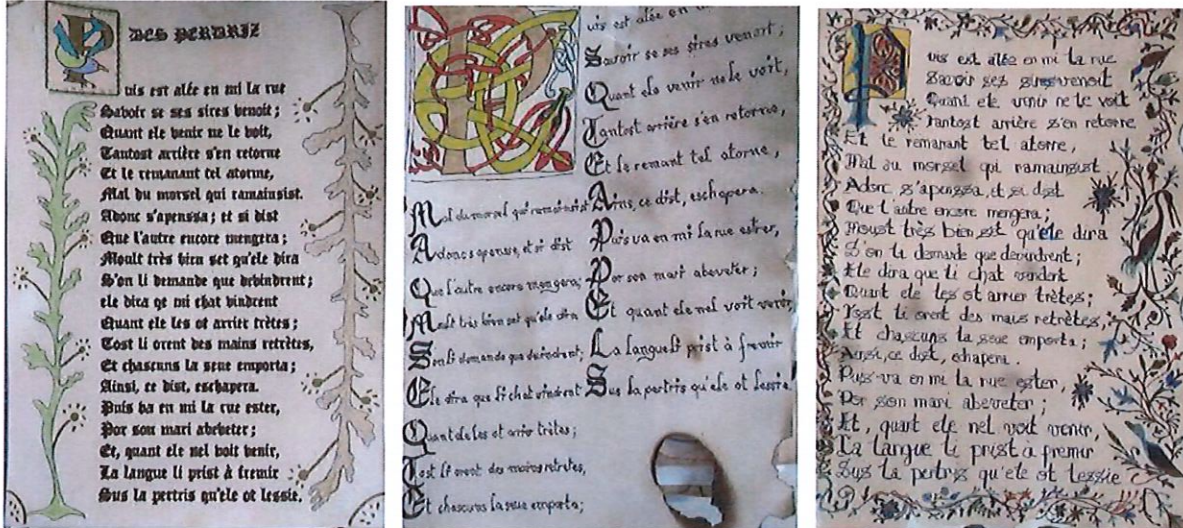 DES PERDRIZ
Puis est alée en mi la rue
Savoir se ses sires venoit;
Quant ele venir ne le voit,
Tantost arrière s'en retorne
Et le remanant tel atorne,
Mal du morsel qui ramainsist.
Adonc s'apenssa; et si dist
Que l'autre encore mengera;
Moult très bien set qu'ele dira
S'on li demande que devindrent;
ele dira qe mi chat vindrent
Quant ele les ot arrier trètes;
Tost li orent des mains retrètes,
Et chascuns la seue emporta;
Ainsi, ce dist, eschapera.
Puis va en mi la rue ester,
Por son mari abeveter;
Et, quant ele nel voit venir,
La langue li prist à fremir
Sus la pertris qu'ele ot lessie.
Puis est alée en
Savoir se ses sires venart;
Quant ele venir ne le voit,
Tantost arrière s'en retorne,
Et le remant tel atorne,
Mal du morsel qui ramainsist
Adonc s apense, et si dist
Que l'autre encore mengera;
Moult très bien set qu'ele dira
Son li demande que devindrent;
Ele dira que li chat vindrent
Quant ele les ot arrier trètes;
Tost li orent des mains retrètes,
Et chascuns la seue emporta;
Ains, ce dist, eschapera.
Puis va en mi la rue estrer,
Por son mari abeveter;
Et quant ele nel voit venir,
La langue li prist à fremir
Sus la pertris qu'ele ot lessie.
Puis est alée en mi la rue
Savoir ses sires venoit
Quant ele venir ne le voit
Tantost arrière s'en retorne
Et le remanant tel atorne,
Mal du morsel qui ramainsist
Adonc s'apenssa, et si dist
Que l'autre encore mengera;
Moust très bien set qu'ele dira
S'on li demande que devindrent;
Ele dira que li chat vindrent
Quant ele les ot arrier trètes;
Tost li orent des mais retrètes,
Et chascuns la seue emporta;
Ainsi, ce dist, ehapera.
Puis-va en mi la rue ester,
Por son mari abeveter;
Et, quart ele nel voit venir,
La langue li prist à fremir
Sus la pertris qu'ele ot lessie